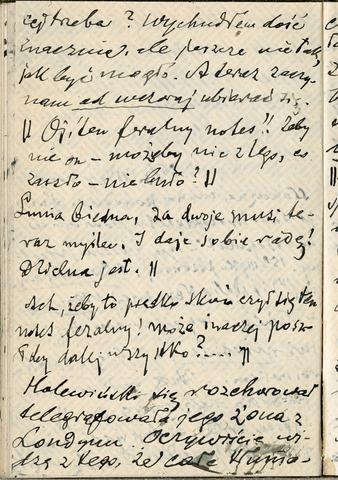 cej trzeba? Wychudłem dość
znacznie, ale jeszcze nie tak,
jak być mogło. A teraz zaczy-
nam od wczoraj ubierać się.
|| Oj! ten feralny notes!! Żeby
nie on – możeby nic z tego, co
zaszło – nie było? ||
Lunia biedna, za dwoje musi te-
raz myśleć. I daje sobie radę!
Dzielna jest. ||
Ach, żeby to prędko skończył się ten
notes feralny! może inaczej posz-
łoby dalej wszystko?.... ||
Halewiński się rozchorował
telegrafowała jego żona z
Londynu. Oczywiście wi-
dzę z tego, że całe